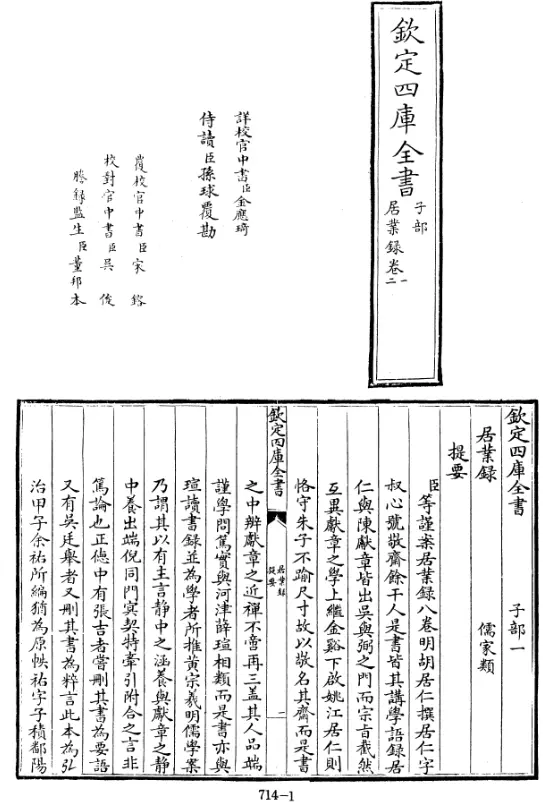 欽定四庫全書
子部
居業録卷一
二
詳校官中書臣金應琦
侍讀臣孫球覆勘
覆校官中書臣宋鎔
校對官中書臣吳俊
謄録監生臣董邦本
欽定四庫全書 子部一
居業録 儒家類
提要
臣等謹案居業録八卷明胡居仁撰居仁字
叔心號敬齋餘干人是書皆其講學語録居
仁與陳獻章皆出吳與弼之門而宗旨截然
互異獻章之學上繼金谿下啟姚江居仁則
恪守朱子不踰尺寸故以敬名其齋而是書
欽定四庫全書
居業録
提要
一
之中辨獻章之近禪不啻再三蓋其人品端
謹學問篤實與河津薛瑄相類而是書亦與
瑄讀書録並為學者所推黄宗羲明儒學案
乃謂其以有主言静中之涵養與獻章之静
中養出端倪同門冥契特牽引附合之言非
篤論也正德中有張吉者嘗刪其書為要語
又有吳廷舉者又刪其書為粹言此本為弘
治甲子余祐所編猶為原帙祐字子積鄱陽
714-1